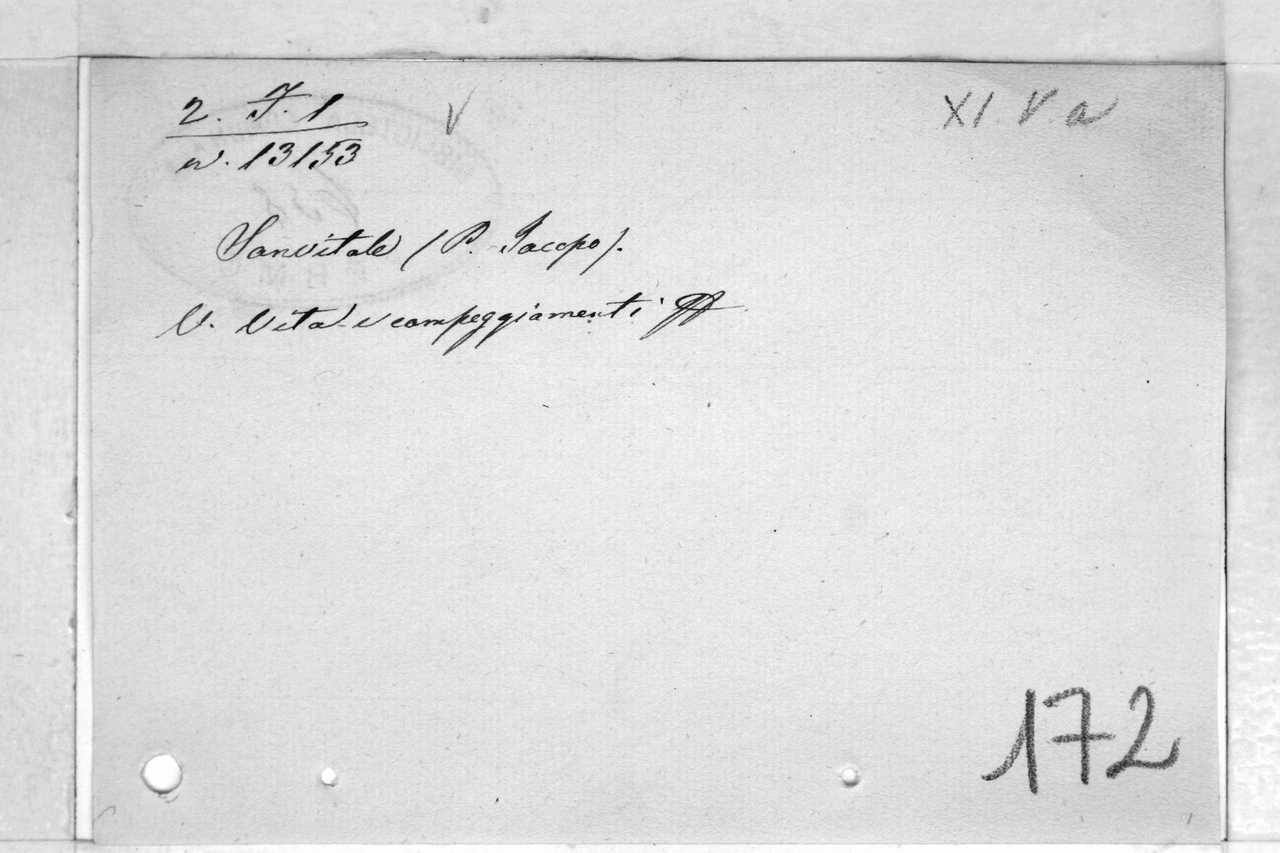 2. F. 1
V
XI. V. a
n. 13153
Sanvitale (P. Jacopo).
V. Vita e campeggiamenti
172